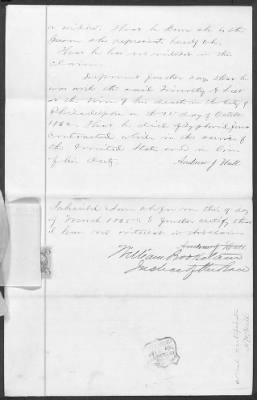 a widow. That he knows she is the
person she represents herself to be.
That he has no interest in this
claim.
Deponent further says that he
was with the said Timothy A
at the time of his death in the City of
Philadelphia on the day of October
1862. That he died of Typhoid fever
contracted while in the service of
the United States and in line
of his duty.
Andrew J Hall
Subscribed & Sworn before me this 9 day
of March 1865 & I further certify that
I have no interest in this claim
Andrew J Hall
William
Justice of the Peace